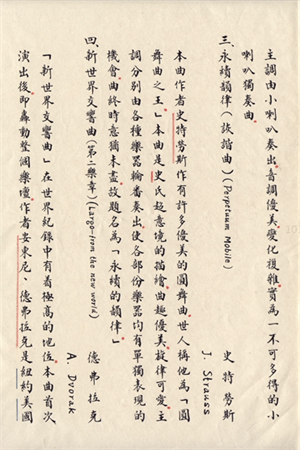 主調由小喇叭奏出音調優美變化複雜實為一不可多得的小
喇叭獨奏曲。
三、永續韻律(詼諧曲)(Perpetuum Mobile)
史特勞斯
J. Strauss
本曲作者史特勞斯作有許多優美的圓舞曲世人稱他為「圓
舞曲之王」本曲是史氏超意境的描繪曲趣優美旋律可愛主
調分別由各種樂器輪番奏出使各部份樂器均有單獨表現的
機會曲終時意猶未盡故題名為「永續的韻律」
四、新世界交響曲(第二樂章)(Largo-from the new world)
德弗拉克
A. Dvorak
「新世界交響曲」在世界紀錄中有着極高的地位。本曲首次
演出後即轟動整個樂壇。作者安東尼、德弗拉克是紐約美國